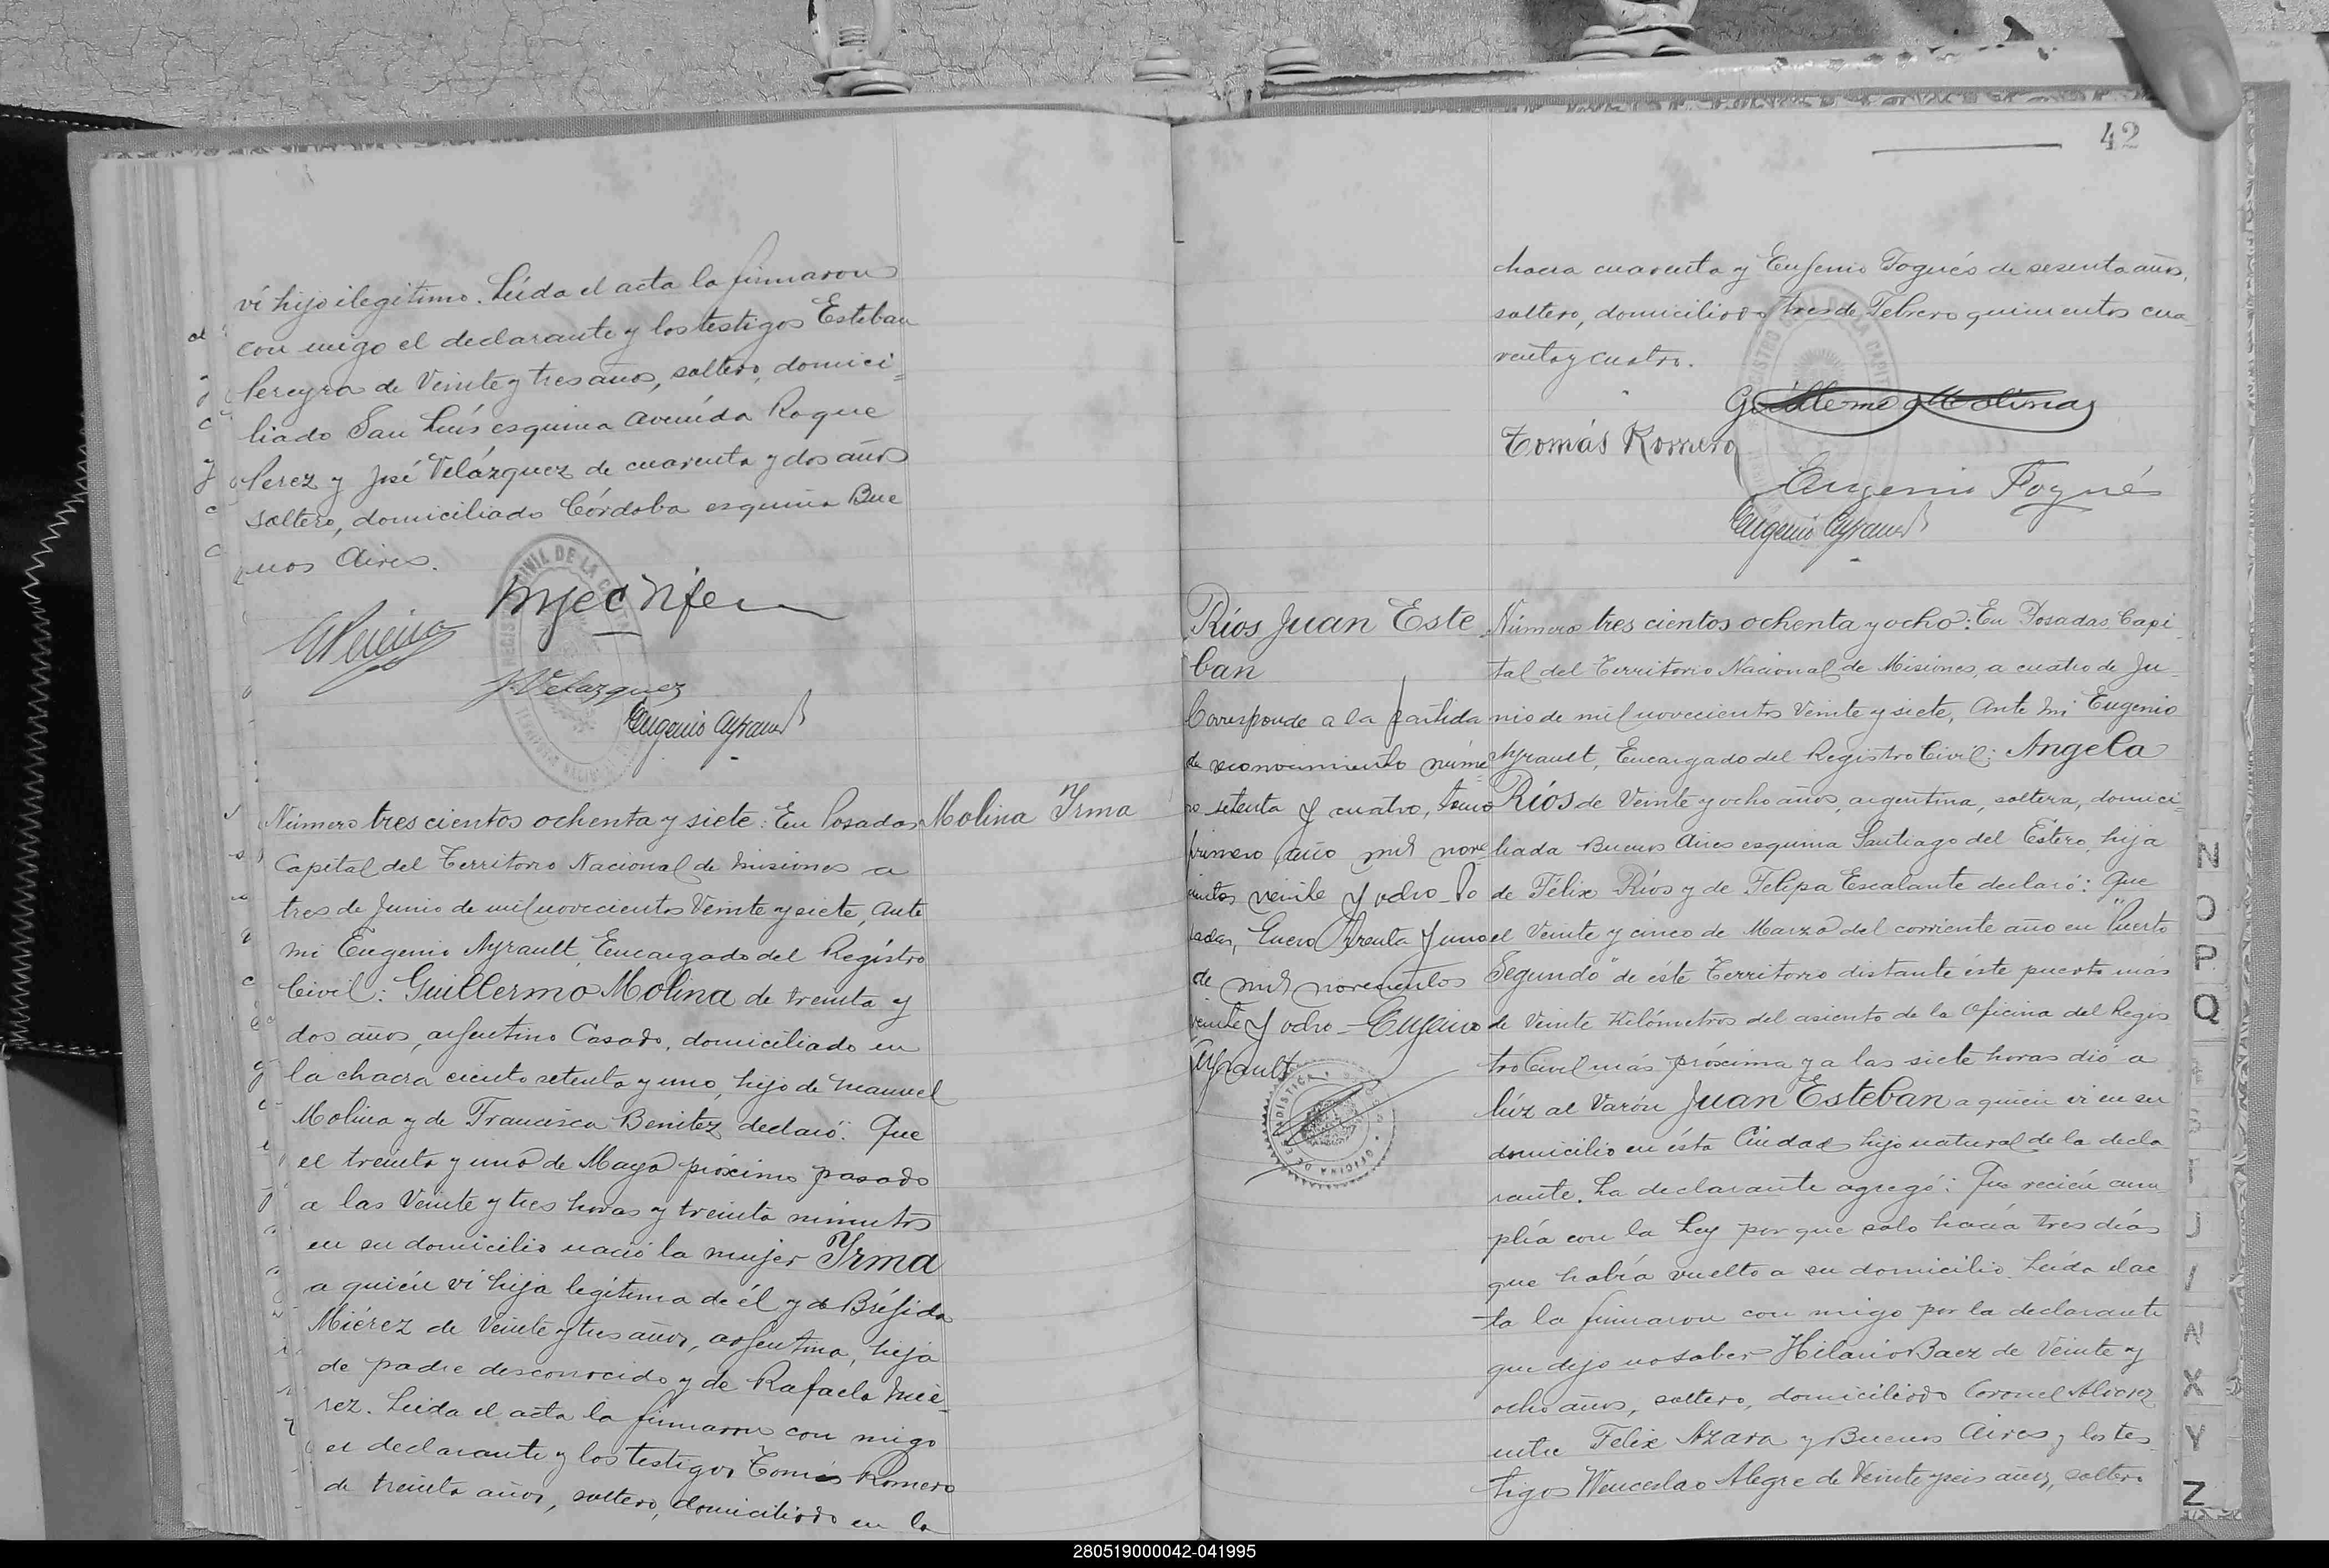 vi hijo ilegitimo. Leída el acta la firmaron
con migo el declarante y los testigos Esteban
Pereyra de Veinte y tres años, soltero, domici=
liado San Luís esquina Avenida Roque
Perez y José Velázquez de cuarenta y dos años
soltero, domiciliado Córdoba esquina Bue
nos Aires.
J. Velazquez
Eugenio Ayrault
Número tres cientos ochenta y siete: En Posadas
Molina Yrma
Capital del Territorio Nacional de Misiones a
tres de Junio de mil novecientos Veinte y siete, Ante
mi Eugenio Ayrault, Encargado del Regístro
Civil: Guillermo Molina de treinta y
dos años, argentino Casado, domiciliado en
la chacra ciento setenta y uno, hijo de Manuel
Molina y de Francisca Benitez declaró: Que
el treinta y uno de Mayo próximo pasado
a las Veinte y tres horas y treinta minutos
en su domicilio nació la mujer Yrma
a quién vi hija legítima de él y de Brésida
Miérez de Veinte y tres años, argentina, hija
de padre desconocido y de Rafaela Mié-
rez. Leida el acta la firmaron con migo
el declarante y los testigos Tomás Romero
de treinta años, soltero, domiciliado en la
42
chacra cuarenta y Eugenio Fogués de sesenta años,
soltero, domiciliado tres de Febrero quinientos cua
renta y cuatro.
Guillermo Molina
Tomás Romero
Eugenio Fogués
Eugenio Ayrault
Ríos Juan Este
ban
Corresponde a la partida
de reconocimiento núme
ro setenta y cuatro, tomo
primero año mil nove
cientos veinte y ocho - Po
sadas, Enero treinta y uno
de mil novecientos
veinte y ocho - Eugenio
Ayrault
OFICINA DE ESTADISTICA
Número tres cientos ochenta y ocho: En Posadas, Capi
tal del Territorio Nacional de Misiones, a cuatro de Ju
nio de mil novecientos Veinte y siete, Ante mi Eugenio
Ayrault, Encargado del Registro Civil: Angela
Ríos de Veinte y ocho años, argentina, soltera, domici=
liada Buenos Aires esquina Santiago del Estero, hija
de Félix Ríos y de Felipa Escalante declaró: Que
el Veinte y cinco de Marzo del corriente año en "Puerto
Segundo" de éste Territorio distante éste puerto más
de Veinte Kilómetros del asiento de la Oficina del Regis
tro Civil más próxima y a las siete horas dió a
lúz al Varón Juan Esteban a quien vi en su
domicilio en ésta Ciudad hijo natural de la decla
rante. La declarante agregó: Que recién cum
plía con la Ley por que solo hacía tres días
que había vuelto a su domicilio. Leída el ac
ta la firmaron con migo por la declarante
que dijo no saber Hilario Baez de Veinte y
ocho años, soltero, domiciliado Coronel Alvarez
entre Felix Azara y Buenos Aires y los tes
tigos Wenceslao Alegre de Veinte y seis años, soltero
N
O
P
Q
S
T
J
I
N
X
Y
Z
280519000042-041995